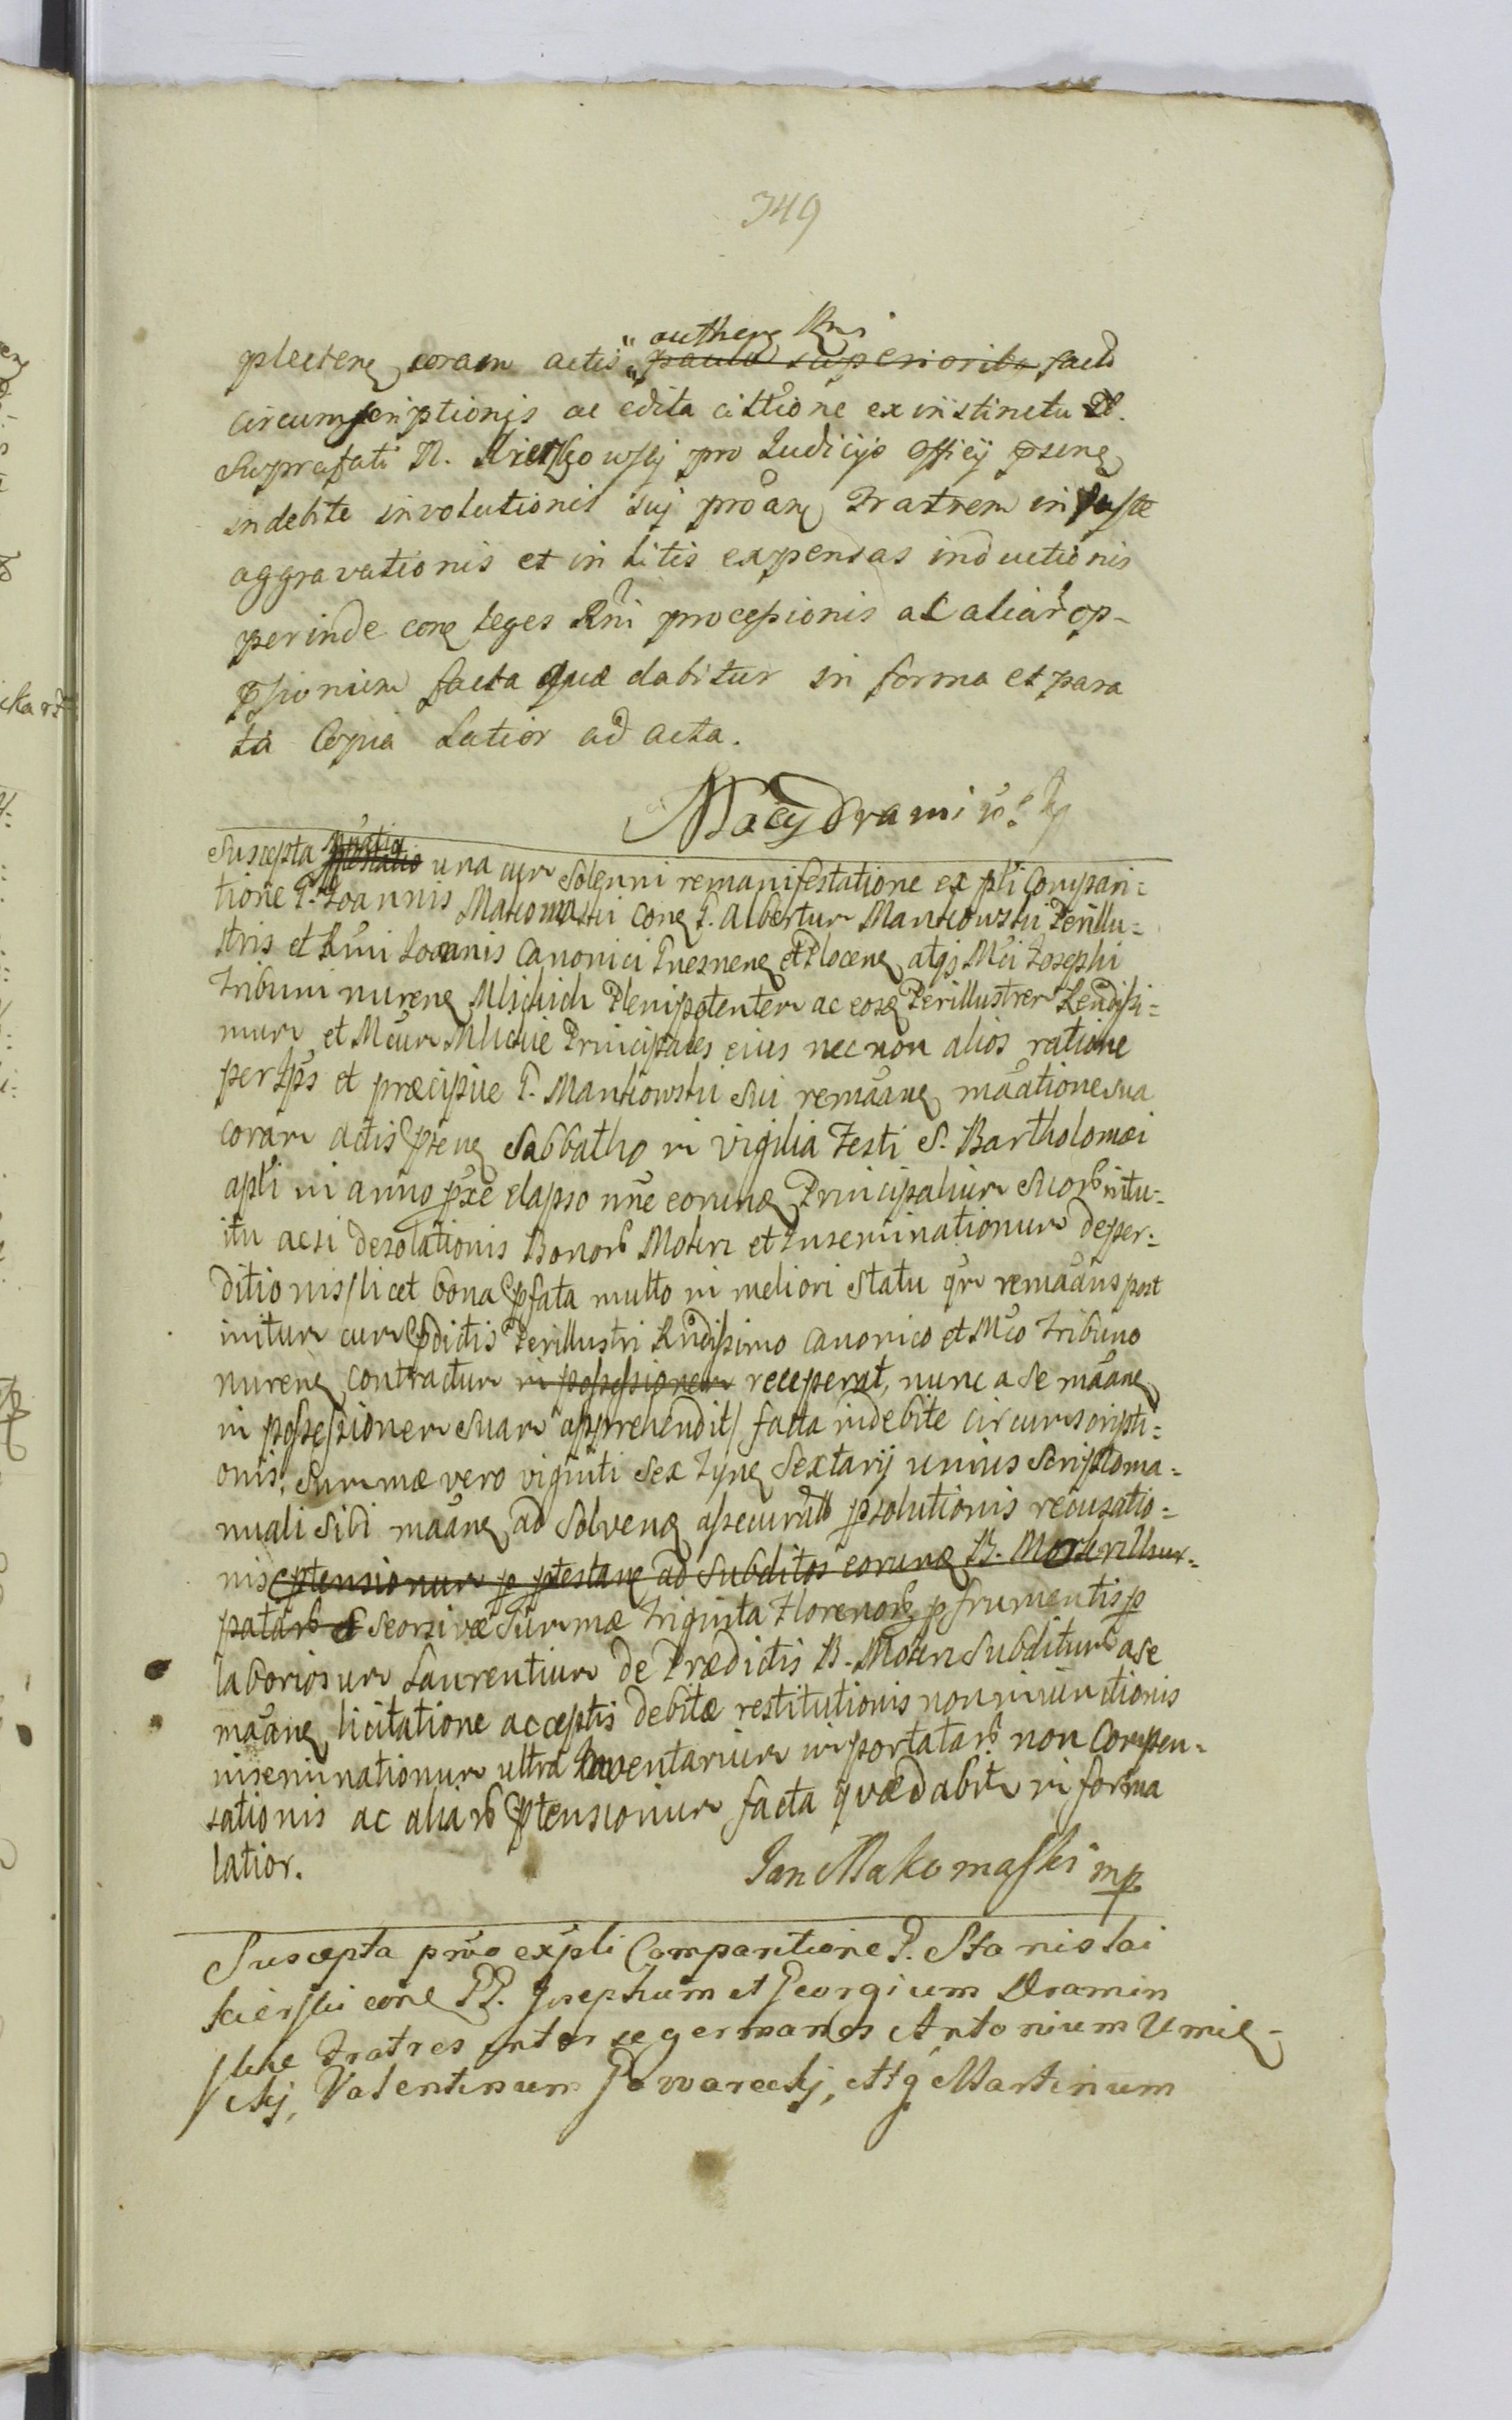 349
authen Rni
plecten coram actis paulo superiorib facta
circumscriptionis ac edita cittione ex instinctu
Suprafati N. pro Judicijs officij psens
indebite involutionis sui proan Fratrem injuste
aggravationis et in litis expensas inductionis
perinde con leges Rni processionis al aliar op-
pssionum facta quæ dabitur in forma et para
ta Copia Latior ad acta.
Macÿ Dramin
Suscepta una cum Solenni remanifestatione ex pli Compari=
tione G. Joannis Makomaski con G. Albertum Mankowski Perillu=
stris et Rmi Joannis Canonici Gnesnen et Plocen atq Mci Josephi
Tribuni nuren Mlickich Plenipotentem ac eosq Perillustrem Rendissi=
mum et Mcum Mlickie Principales eius nec non alios ratione
per Ips et præcipue G. Mankowski sui remãan mãatione sua
coram actis psen Sabbatho in vigilia Festi S. Bartholomæi
apli in anno pxe elapso nne eorunq Principalium Suorb intu=
itu acsi desolationis Bonorb Mokrz et Inseminationum deper=
ditionis/licet bona pfata multo in meliori statu qm remãans post
initum cum pdictis Perillustri Rndissimo Canonico et Mco Tribuno
nuren contractum in possessionem receperat, nunc a se mãan
in possessionem suam apprehendit/ facta indebite circumscripti=
onis, Summæ vero viginti sex Tyn Sextarij unius Scripto ma=
nuali sibi mãan ad Solven assecuratæ psolutionis recusatio=
nis ptensionum p ptestan ad Subditos eorunq B. Mokrz
patarb Seorsivæ Summæ Triginta Florenorb p frumentis p
laboriosum Laurentium de Prædictis B. Mokrz Subditum a se
mãan licitatione acceptis debitæ restitutionis non iniunctionis
inseminationum ultra Inventarium importatarb non Compen=
sationis ac aliarb ptensionum facta quæ dabitr in forma
latior.
Jan Makomaski mp
Suscepta prõo ex pli Comparitione G. Stanislai
Kierski con GG. Josephum et Georgium Dramin
skie Fratres inter se germanos Antonium Umie=
cki, Valentinum Gowarecki, Atq Martinum